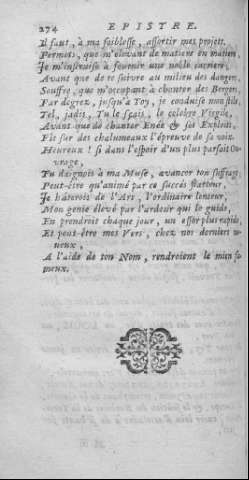 274 EPISTRE.
Il faut, à ma foiblesse, assortir mes projets.
Permets, que m'élevant de matiere en matiere,
Je m'instruise à fournir une noble carriere;
Avant que de te suivre au milieu des dangers,
Souffre, que m'occupant à chanter des Bergers,
Par degrez, jusqu'à Toy, je conduise mon stile,
Tel, jadis, Tu le sçais, le celebre Virgile,
Avant que de chanter Enée & ses Exploits,
Fit sur des chalumeaux l'épreuve de sa voix.
Heureux! si dans l'espoir d'un plus parfait Ou-
vrage,
Tu daignois à ma Muse, avancer ton suffrage,
Peut-être qu'animé par ce succés flatteur,
Je hâterois de l'Art, l'ordinaire lenteur,
Mon genie élevé par l'ardeur qui le guide,
En prendroit chaque jour, un essor plus rapide,
Et peut-être mes Vers, chez nos derniers
neveux,
A l'aide de ton Nom, rendroient le mien fa-
meux.